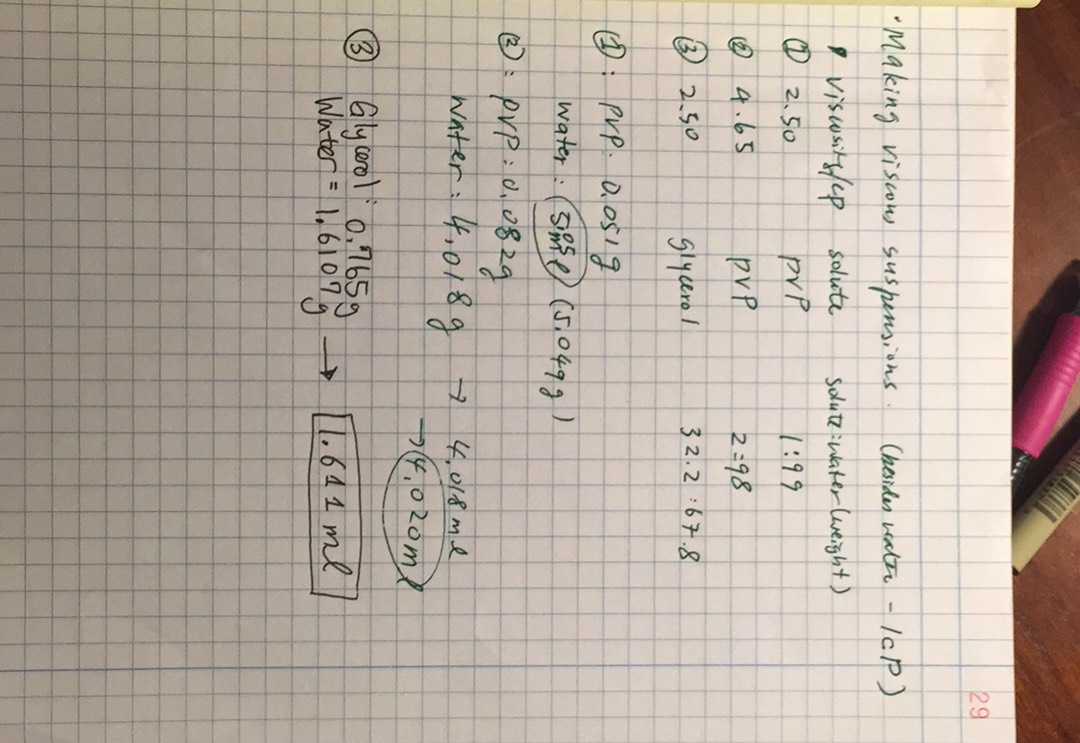 29
• Making viscous suspensions. (besides water - 1cP)
viscosity/cp solute solute:water (weight)
① 2.50 PVP 1:99
② 4.65 PVP 2:98
③ 2.50 glycerol 32.2:67.8
①: PVP: 0.051g
water: (5.049g)
②: PVP: 0.082g
water: 4.018g → 4.018ml
→ 4.020ml
③ Glycerol: 0.765g
Water = 1.6107g → 1.611ml